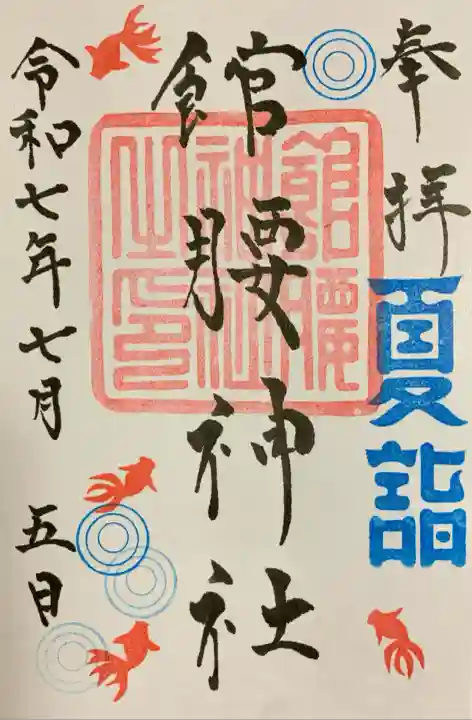 奉拝
夏詣
館腰神社
館腰
神社
之印
令和七年七月 五日